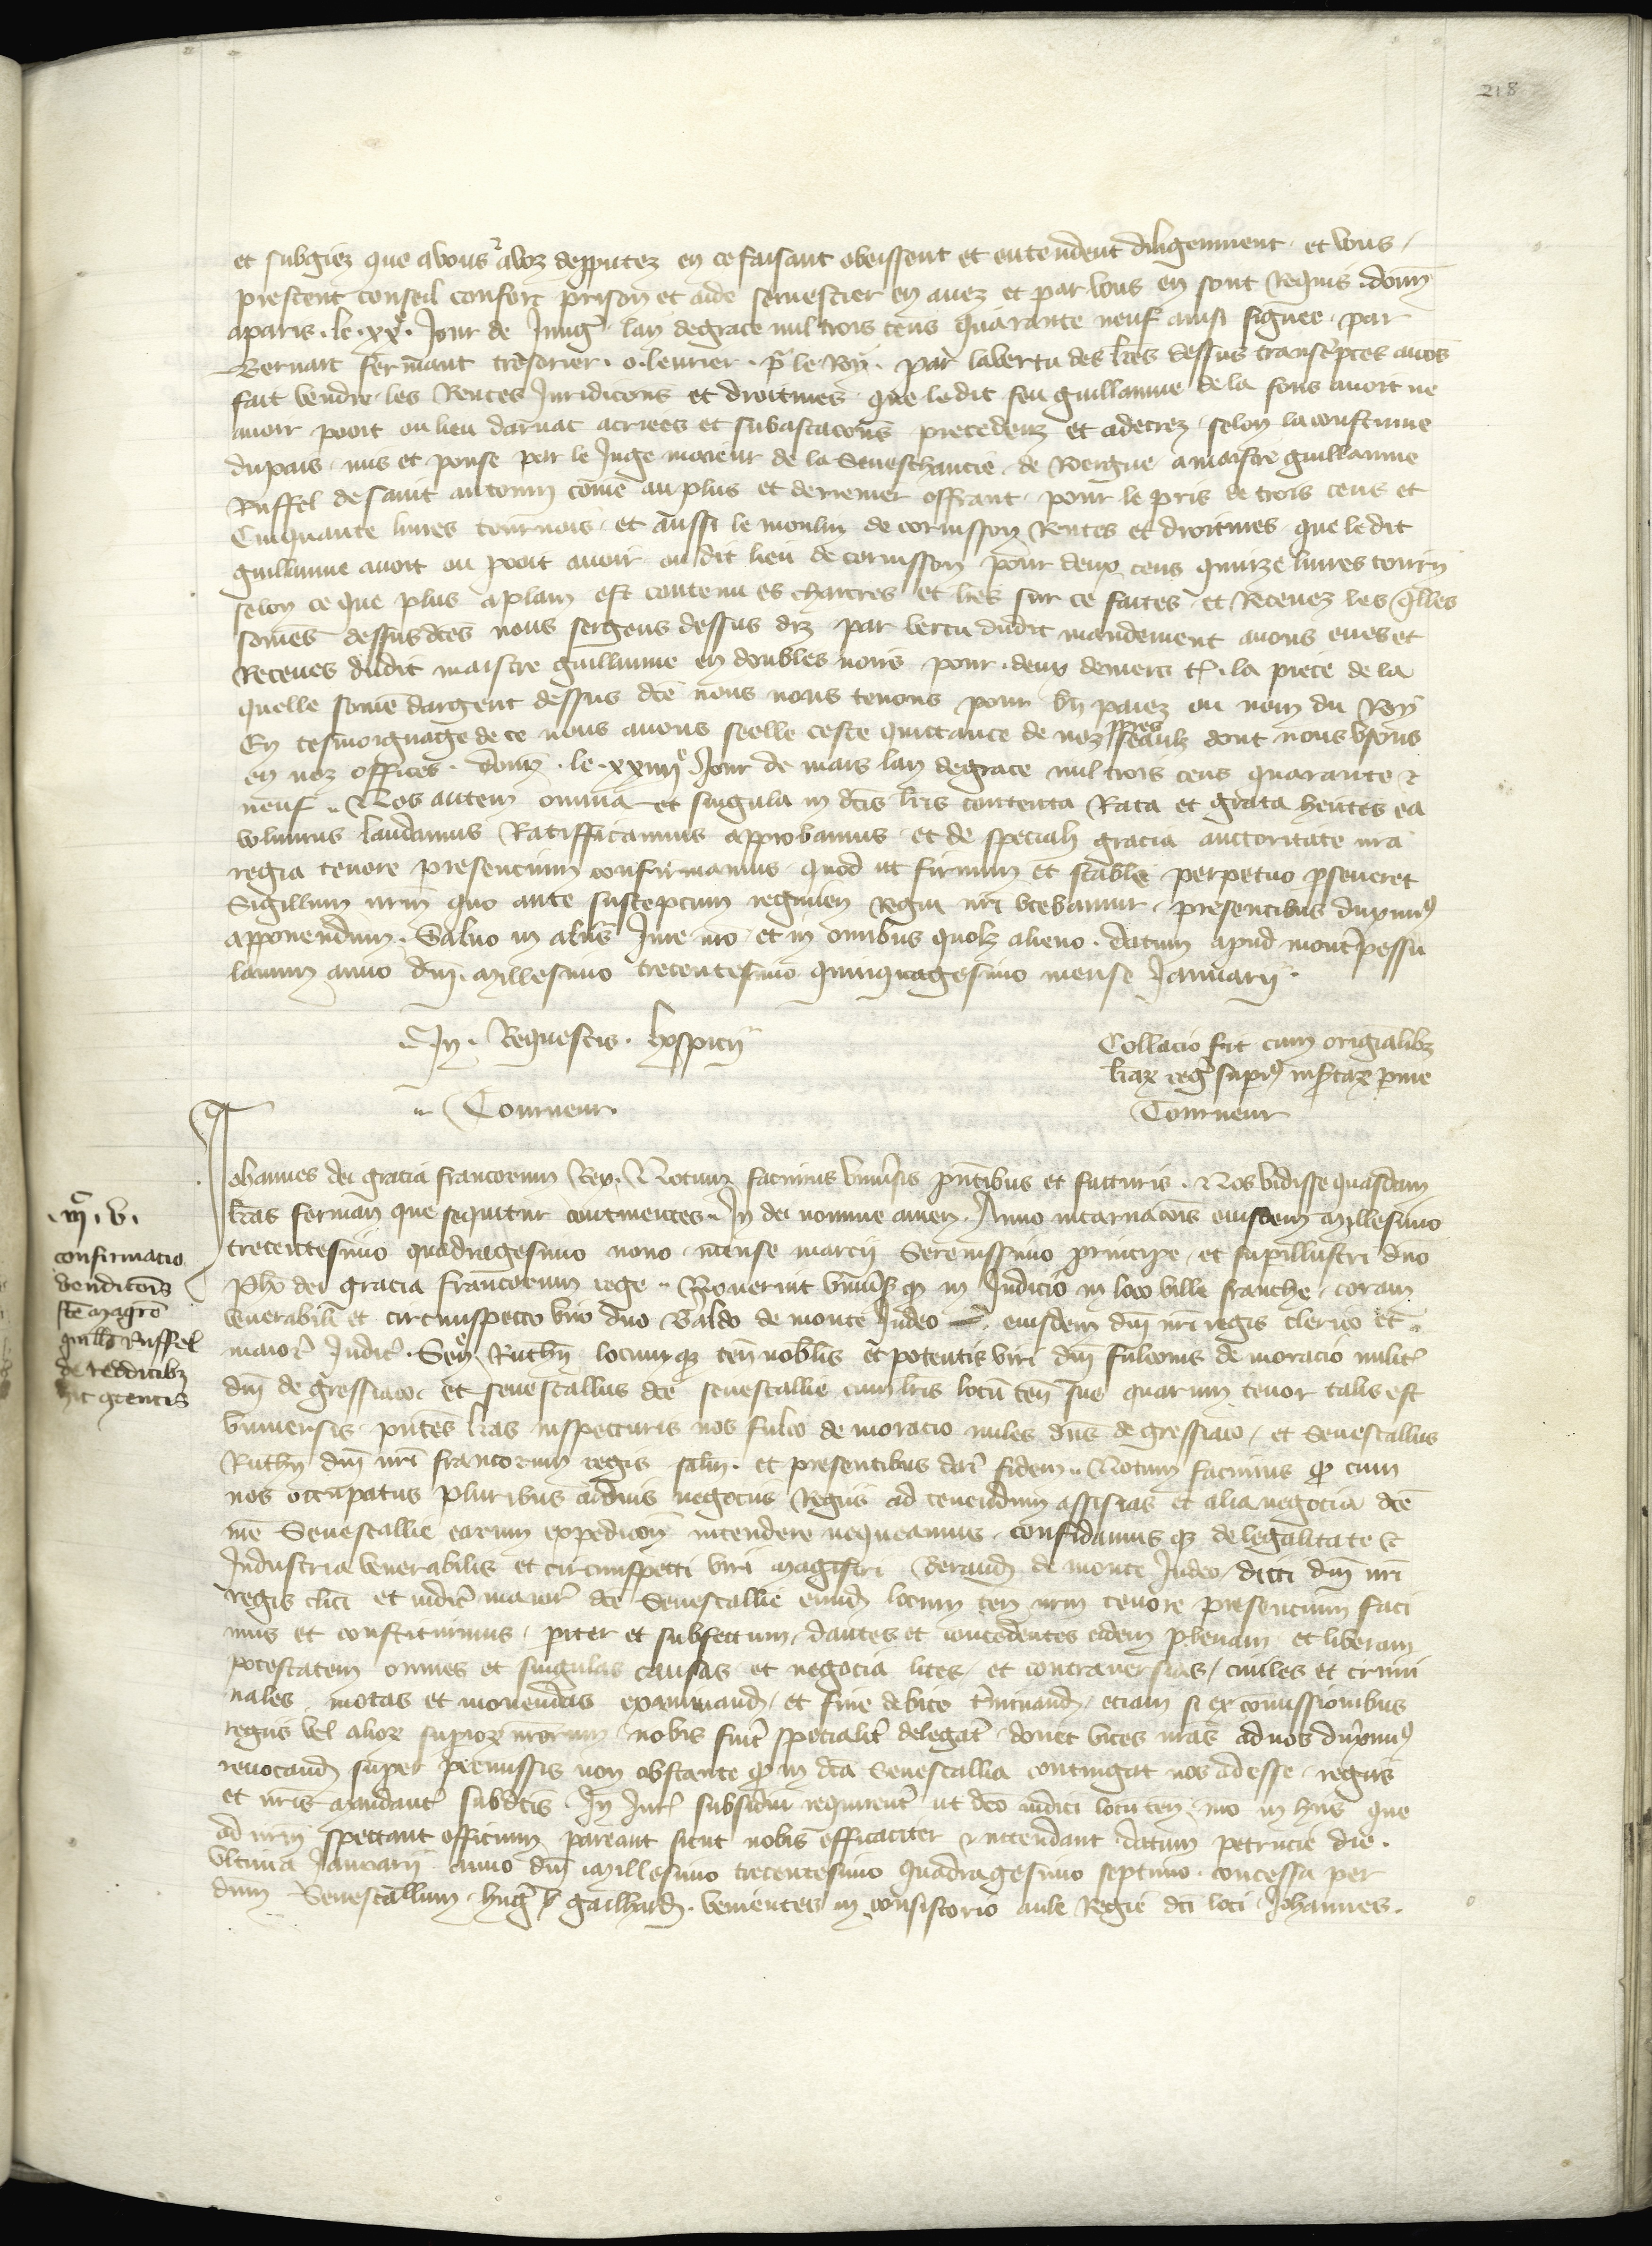 218
et subgiez que avous ⁊ avoz depputez en ce faisant obeissent et entendent diligemment et vous
prestent conseil confort prison et aide se mestier en avez et par vous en sont Requis . donn
aparis . le . xxe . Jour de Juing lan degrace mil trois cens quarante neuf ainsi signee par
Bernart fermant tresorier . o . levrier . p le Roy . par lavertu des lres dessus transcriptes avons
fait vendre les Rentes Juridicons et droitures que ledit feu guillaume de la fons avoit ne
avoir pooit ou lieu darnac acriees et subastacons precedenz et adecrez selon lacoustume
dupais mis et pouse par le Juge maieur de la Seneschaucie de Roergue a maistre guillaume
Ruffel de saint antonin come au plus et derrenier offrant pour le pris de trois cens et
Cinquante livres tournois et aussi le moulin de cornisson Rentes et droitures que ledit
guillaume avoit ou pooit avoir ou dit lieu de cornisson pour deux cens quinze livres tourn
selon ce que plus aplain est contenu es chartres et lres sur ce faites et Recevez les qlles
somes dessusdces nous sergens dessus diz par vertu dudit mandement avons eues et
Receues dudit maistre guillaume en doubles noirs pour deux deniers t . la piece de la
quelle some dargent dessus dce nous nous tenons pour bn paiez ou nom du Roy
En tesmoignage de ce nous avons seelle ceste quittance de noz ppres seaulx dont nous usons
en noz offices . donn . le . xxiiiie Jour de mars lan degrace mil trois cens quarante ⁊
neuf .. Nos autem omnia et singula in dcis lris contenta Rata et grata hentes ea
volumus laudamus Ratifficamus approbamus et de speciali gracia auctoritate nra
regia tenore presencium confirmamus . quod ut firmum et stabile perpetuo pseveret
Sigillum nrm quo ante susceptum regimen Regni nri utebamur presentibus duximus
apponendum . Salvo in aliis Jure nro et in omibus quolz alieno . datum apud montepessu
lanum anno dni millesimo trecentesimo quinquagesimo mense Januarii .
In . Requestis . hospicii
.. Tourneur .
Collacio fit cum originalibz
lraz reg supius insertaz pme
Tourneur
Johannes dei gracia francorum Rex . Notum facimus universis pntibus et futturis . Nos vidisse quasdam
lras formam que sequitur continentes .. In dei nomine amen . Anno incarnacois eiusdem millesimo
trecentesimo quadragesimo nono mense marcii Serenissimo principe et supillustri dno
Pho dei gracia francorum rege .. Noverint universi q in Judicio in loco ville franche . coram
venerabili et circumspecto viro dno Baldo de monte Judeo eiusdem dni nri regis clerico et
maior Judic . Sen Ruthn locumq ten nobilis et potentis viri dni fulconis de moracio milit
dni de gressiaco et senescallus dce senescallie cum lris locu ten sue quarum tenor talis est
universis pntes lras inspecturis nos fulco de moracio miles dns de gressiaco et Senescallus
Ruthn dni nri francorum regis salm . et presentibus dari fidem .. Notum facimus q cum
nos occupatus pluribus arduis negociis Regiis ad tenendum assisias et alia negocia dce
nre Senescallie earum expedicon intendere nequeamus . confidamus q de legalitate ⁊
Industria venerabilis et circumspecti viri magistri Geraud de monte Judeo dicti dni nri
regis clici et iudic maior dce Senescallie eiusd locum ten nrm tenore presencium faci
mus et constituimus . piter et subfectum dantes et concedentes eidem plenam et liberam
potestatem omnes et singulas causas et negocia lites et contraversias / civiles et crimi
nales motas et movendas examinand et fine debito terminand . etiam si ex comissionibus
regiis vel alior supioz nrorum nobis fuit specialit delegat donec vices nras ad nos duximus
revocand super premissis non obstante q in dca Senescallia contingat nos adesse regiis
et nris mandant subdctis . In Jur subsidiu requirent ut dco iudici locu ten nro in hiis que
ad nrm spectant officium pareant sicut nobis efficaciter et intendant datum petrucie die .
Ultima Januarii anno dni millesimo trecentesimo quadragesimo septimo . concessa per
dnm Senescallum . hug gailhard . venientes in consistorio aule Regie dci loci Johannes .
. m . v .
confirmacio
vendicois
fce magro
guillo Ruffel
de redditibz
hic gtentis